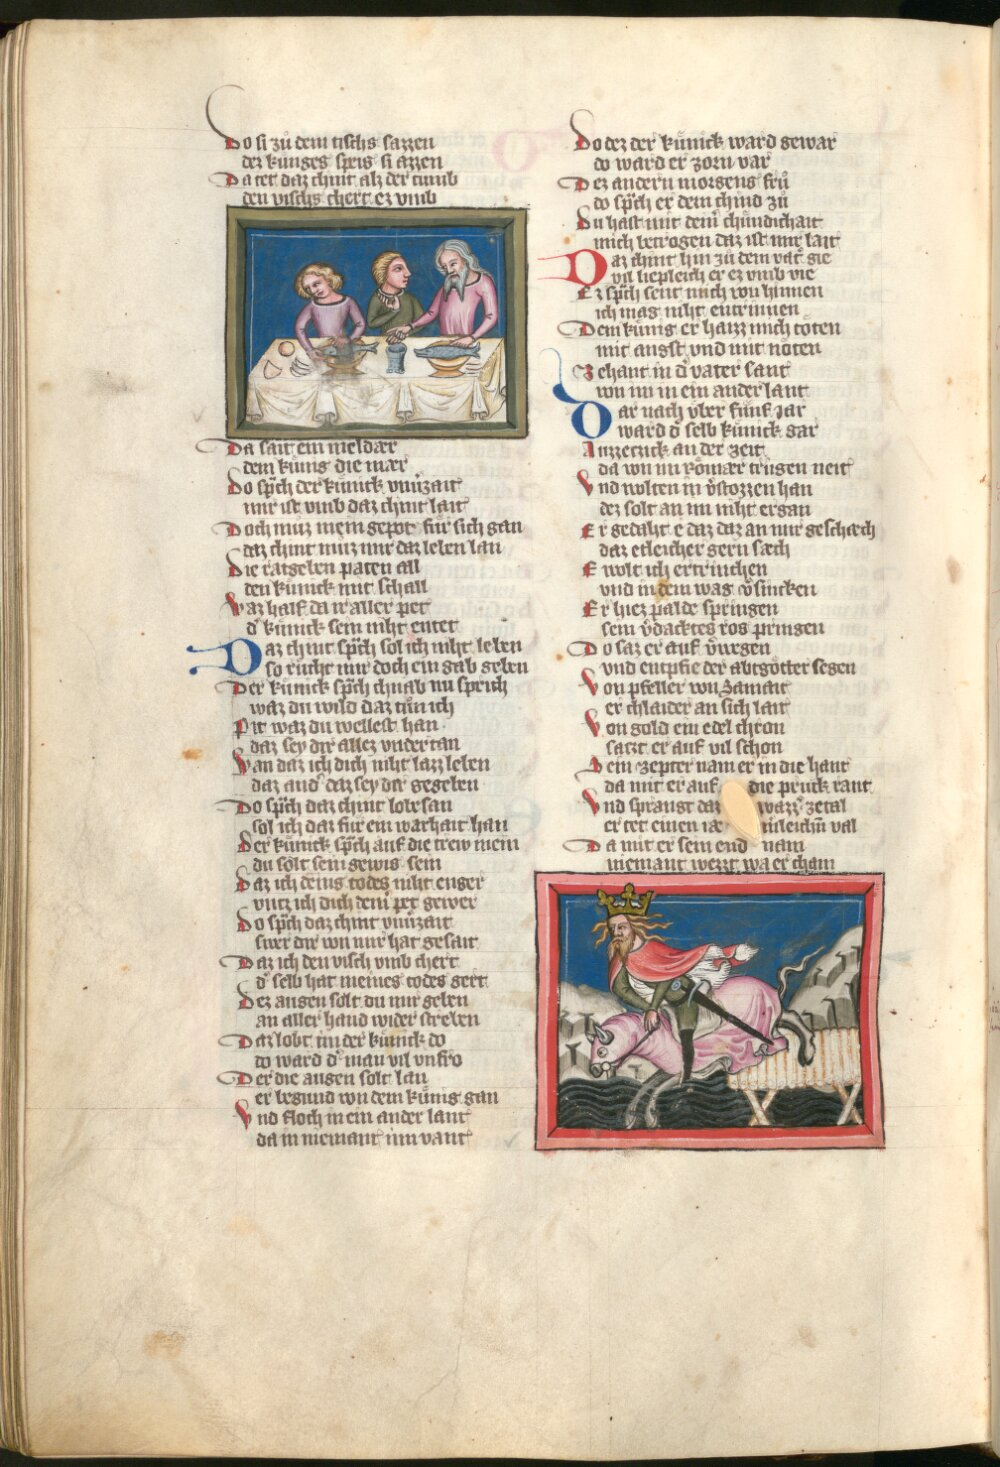 Do si zů dem tischs sazzen
dez kunges speis si azzen
Da tet daz chint alz der tumb
den vischs chert ez vmb
Da sait ein meldær
dem kunig die mær
Do spͨh der kůnick vnuͤzait
mir ist vmb daz chint lait
Doch muz mein gepot fur sich gan
daz chint muz mir daz leben lan
Die ratgeben paten all
den kůnick mit schall
Waz half da ir aller pet
dˀ kůnick sein niht entet
Daz chint spͨh sol ich niht leben
so rucht mir doch ein gab geben
Der kůnick spͨh chnab nu sprich
waz du wild daz tůn ich
Pit waz du wellest han
daz sey dir allez vndertan
Wan daz ich dich niht lazz leben
daz andˀ daz sey dir gegeben
Do spͨh daz chint lobesan
sol ich daz fur ein warhait han
Der kůnick spͨh auf die trew mein
du solt sein gewis sein
Daz ich deins todes niht enger
vntz ich dich deinˀ pet gewer
Do spͨh daz chint vnuͤzait
swer dir von mir hat gesait
Daz ich den visch vmb chert
dˀ selb hat meines todes gert
Dez augen solt du mir geben
an aller hand wider streben
Daz lobt im der kůnick do
do ward dˀ man vil vnfro
Der die augen solt lan
er begund von dem kůnig gan
Vnd floch in ein ander lant
da in niemant inn vant
Do dez der kůnick ward gewar
do ward er zorn var
Dez andern morgens frů
do spͨh er dem chind zů
Du hast mit deinˀ chůndichait
mich betrogen daz ist mir lait
Daz chint hin zů dem vatˀ gie
vil liepleich er ez vmb vie
Er spͨh sent mich von hinnen
ich mag niht entrinnen
Dem kůnig er haizz mich toten
mit angst vnd mit noten
Zehant in dˀ vater sant
von im in ein ander lant
Dar nach vber funf iar
ward dˀ selb kůnick gar
Auzzetzick an der zeit
da von im Romær trugen neit
Vnd wolten in vˀstozzen han
dez solt an im niht ergan
Er gedaht e daz daz an mir geschæch
daz etleicher gern sæch
E wolt ich ertrinchen
vnd in dem wag vˀsincken
Er hiez palde springen
sein vˀdacktes ros pringen
Do saz er auf vˀwegen
vnd enpfie der abtgotter segen
Von pfeller von Samant
er chlaider an sich lait
Von gold ein edel chron
satzt er auf vil schon
Sein zepter nam er in die hant
da mit er auf die pruck rant
Vnd sprangt daz wazzˀ zetal
er tet einen iæ val
Da mit er sein end nam
niemant waizt wa er cham